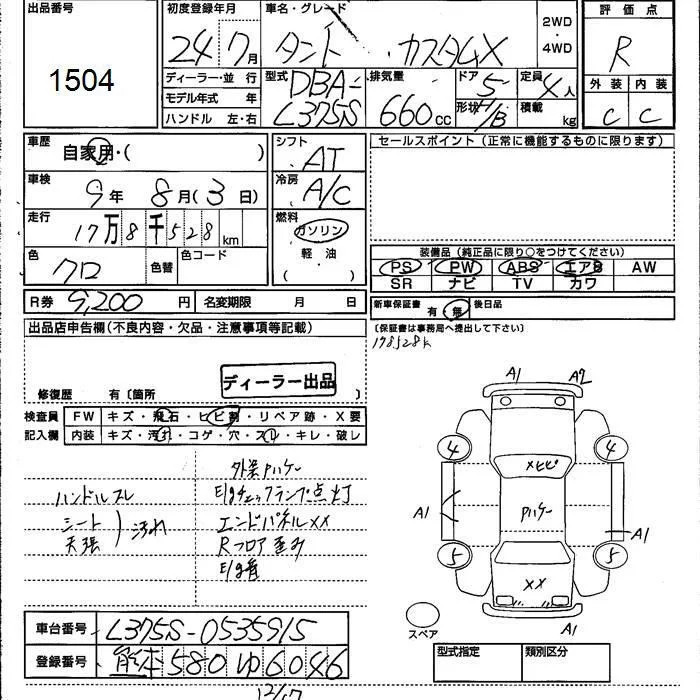 出品番号
1504
初度登録年月
24 7月
車名・グレード
タント カスタムX
2WD
・
4WD
評価点
R
ディーラー・並 行
モデル年式 年
ハンドル 左・右
型式
DBA-
L375S
排気量
660cc
ドア 5
形状 H/B
定員 4人
積載 kg
外装 内装
C C
車歴
自家用・( )
車検
9年 8月(3日)
走行
17万8千528km
色
クロ
色替
色コード
シフト
AT
冷房
A/C
燃料
ガソリン
軽・油
( )
セールスポイント(正常に機能するものに限ります)
装備品(純正品に限り○をつけてください)
PS PW ABS エアB AW
SR ナビ TV カワ
R券 9,200円
名変期限 月 日
新車保証書 有・無
後日品
(保証書は事務局へ提出して下さい)
178528k
出品店申告欄(不良内容・欠品・注意事項等記載)
修復歴 有〔箇所 〕
ディーラー出品
検査員
記入欄
FW キズ・飛石・ヒビ割・リペア跡・X要
内装 キズ・汚れ・コゲ・穴・スレ・キレ・破レ
外装Pハゲー
ハンドルスレ
E/gチェックランプ点灯
シート
天張
汚れ
エンドパネルXX
Rフロア歪み
E/g音
A1 A2
4 4
×ヒビ
A1
Pハゲー
A1
5 5
XX
A1
スペア
車台番号 L375S-0535915
登録番号 熊本580ゆ6046
型式指定
類別区分
12/17